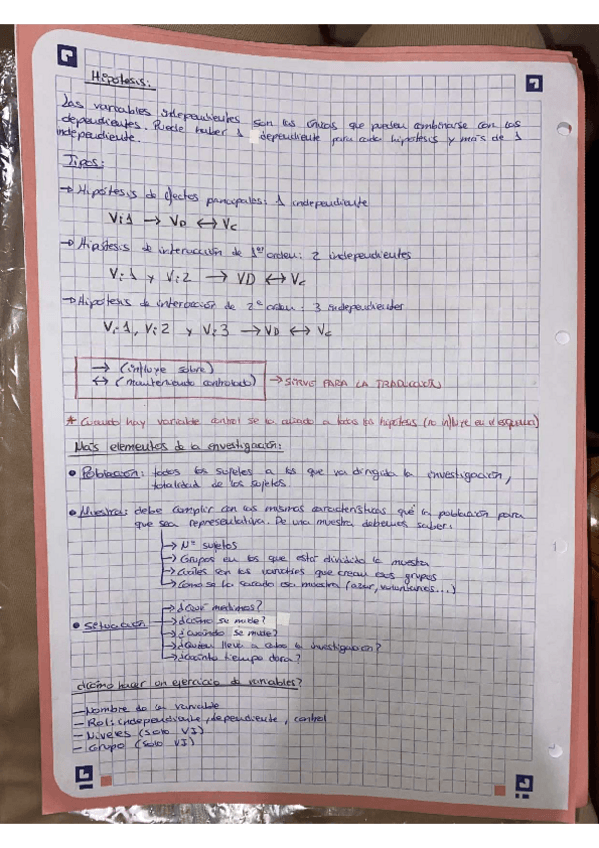 Hipótesis:
Las variables independientes son las únicas que pueden combinarse con las
dependientes. Puede haber 1 dependiente para cada hipótesis y más de 1
independiente.
Tipos:
→ Hipótesis de efectos principales: 1 independiente
Vi1 → VD ↔ Vc
→ Hipótesis de interacción de 1er orden: 2 independientes
Vi1 y Vi2 → VD ↔ Vc
→ Hipótesis de interacción de 2º orden: 3 independientes
Vi1, Vi2 y Vi3 → VD ↔ Vc
→ (influye sobre)
↔ (manteniendo controlado) → SIRVE PARA LA TRADUCCIÓN
* Cuando hay variable control se la añado a todas las hipótesis (no influye en el esquema)
Más elementos de la investigación:
• Población: todos los sujetos a los que va dirigida la investigación,
totalidad de los sujetos
• Muestra: debe cumplir con las mismas características que la población para
que sea representativa. De una muestra debemos saber:
→ Nº sujetos
→ Grupos en los que está dividida la muestra
→ Cuáles son las variables que crean esos grupos
→ Cómo se ha sacado esa muestra (azar, voluntarios...)
• Situación
→ ¿Qué medimos?
→ ¿Cómo se mide?
→ ¿Cuándo se mide?
→ ¿Quién lleva a cabo la investigación?
→ ¿Cuánto tiempo dura?
¿Cómo hacer un ejercicio de variables?
— Nombre de la variable
— Rol: independiente, dependiente, control
— Niveles (solo VI)
— Grupo (solo VI)
1